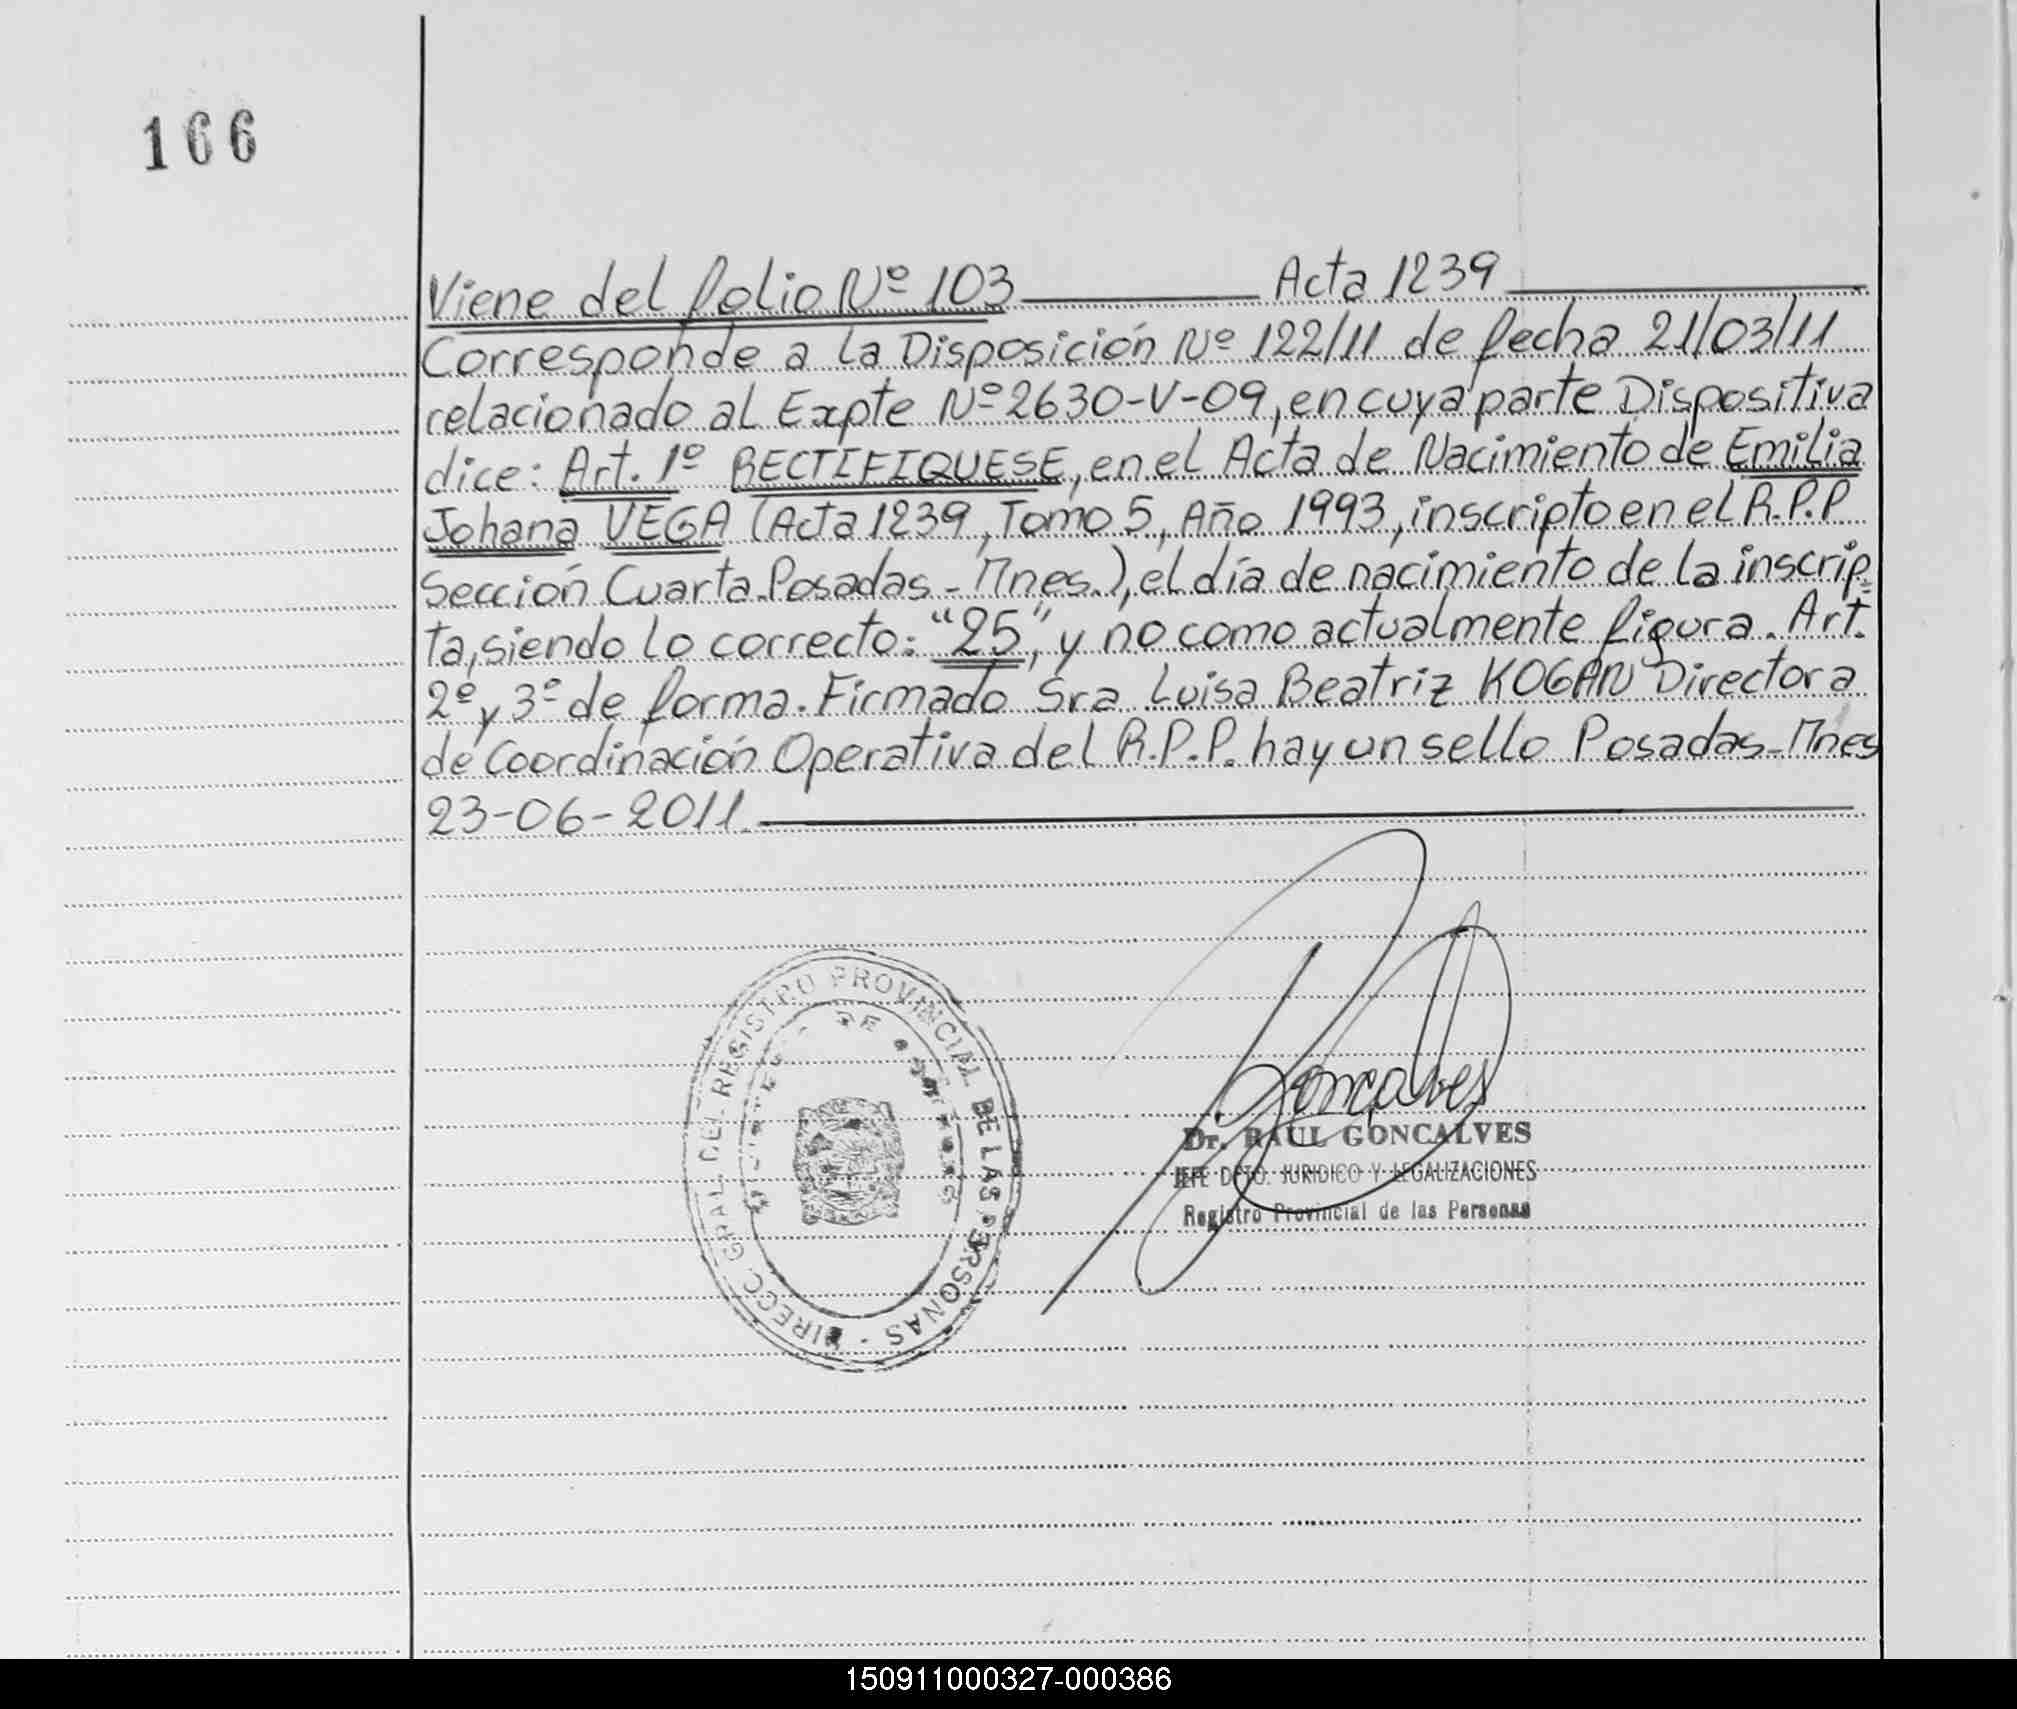 166
Viene del folio Nº 103 Acta 1239
Corresponde a la Disposición Nº 122/11 de fecha 21/03/11
relacionado al Expte Nº 2630-V-09, en cuya parte Dispositiva
dice: Art. 1º RECTIFIQUESE, en el Acta de Nacimiento de Emilia
Johana VEGA (Acta 1239, Tomo 5, Año 1993, inscripto en el R.P.P
Sección Cuarta Posadas-Mnes.), el día de nacimiento de la inscrip-
ta, siendo lo correcto: "25", y no como actualmente figura. Art.
2º y 3º de forma. Firmado Sra Luisa Beatriz KOGAN Directora
de Coordinación Operativa del R.P.P. hay un sello Posadas-Mnes
23-06-2011.
DIRECC. GRAL. DEL REGISTRO PROVINCIAL DE LAS PERSONAS -
DE
Goncalves
Dr. RAUL GONCALVES
JEFE DPTO. JURIDICO Y LEGALIZACIONES
Registro Provincial de las Personas
150911000327-000386